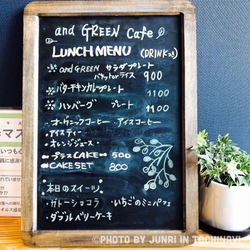 and GREEN Cafe
LUNCH MENU (DRINKつき)
and GREEN サラダプレート
バケット or ライス 900
バターチキンカレープレート 1100
ハンバーグ プレート 1100
・オーガニックコーヒー ・アイスコーヒー
・アイスティー
・オレンジジュース
プラスCAKE 500
CAKE SET 800
本日のスイーツ
・ガトーショコラ ・いちごのミニパフェ
・ダブルベリーケーキ
マス
いつも
PHOTO BY JUNRI IN TOCHINAVI